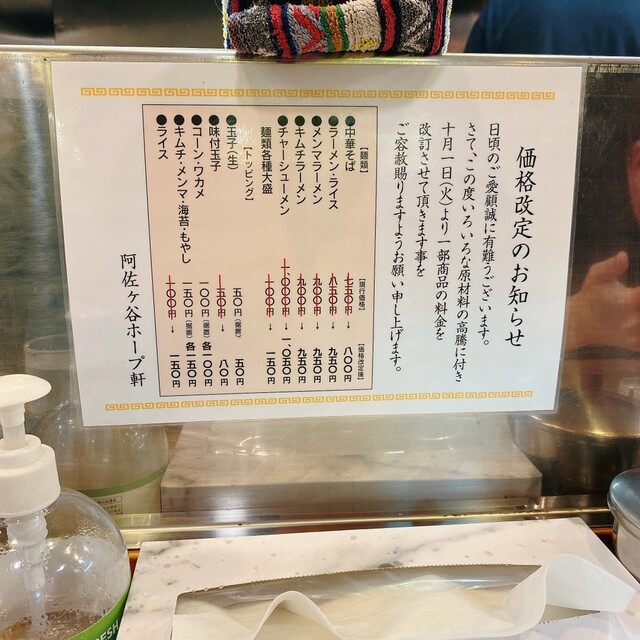 価格改定のお知らせ
日頃のご愛顧誠に有難うございます。
さて、この度いろいろな原材料の高騰に付き
十月一日(火)より一部商品の料金を
改訂させて頂きます事を
ご容赦賜りますようお願い申し上げます。
【麺類】 【現行価格】 【価格改定後】
●中華そば 七五〇円 → 八〇〇円
●ラーメン・ライス 八五〇円 → 九五〇円
●メンマラーメン 九〇〇円 → 九五〇円
●キムチラーメン 九〇〇円 → 九五〇円
●チャーシューメン 一、〇〇〇円 → 一、〇五〇円
麺類各種大盛 一〇〇円 → 一五〇円
【トッピング】
●玉子(生) 五〇円(据置) 五〇円
●味付玉子 五〇円 → 八〇円
●コーン・ワカメ 一〇〇円(据置) 各一〇〇円
●キムチ・メンマ・海苔・もやし 一五〇円(据置) 各一五〇円
●ライス 一〇〇円 → 一五〇円
阿佐ヶ谷ホープ軒